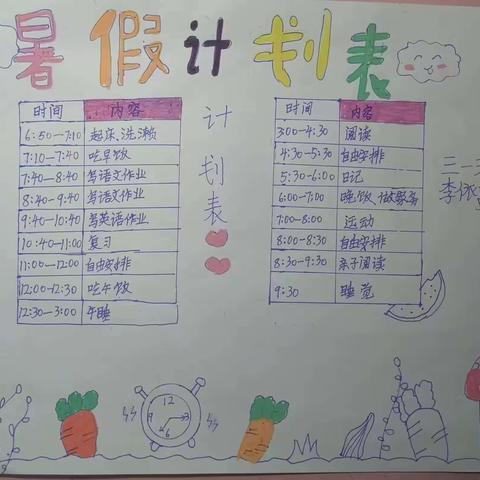 暑假计划表
时间 内容
6:50—7:10 起床、洗漱
7:10—7:40 吃早饭
7:40—8:40 写语文作业
8:40—9:40 写语文作业
9:40—10:40 写英语作业
10:40—11:00 复习
11:00—12:00 自由安排
12:00—12:30 吃午饭
12:30—3:00 午睡
计划表
时间 内容
3:00—4:30 阅读
4:30—5:30 自由安排
5:30—6:00 日记
6:00—7:00 晚饭、做家务
7:00—8:00 运动
8:00—8:30 自由安排
8:30—9:30 亲子阅读
9:30 睡觉
三一
李
12
3
6
9